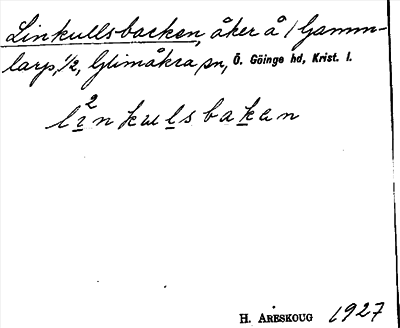 Linkullsbacken, åker å 1 Gamm-
larp, 1/2, Glimåkra sn, Ö. Göinge hd, Krist. l.
li²nkulsbakan
H. ARESKOUG 1927